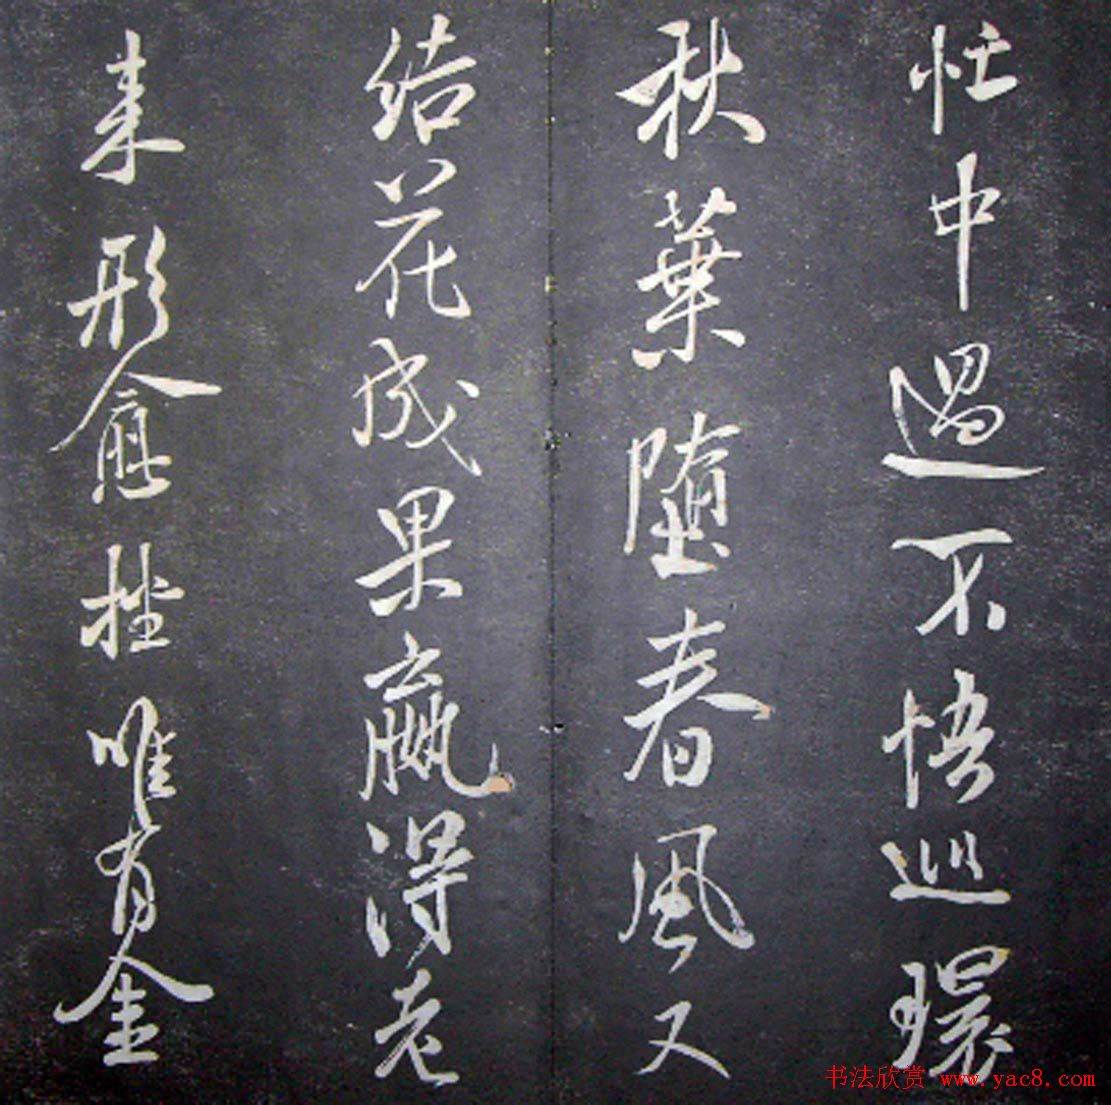 忙中過不悟巡環
秋葉墮春風又
結花成果贏得老
来形愈拙唯有金
书法欣赏 www.yac8.com